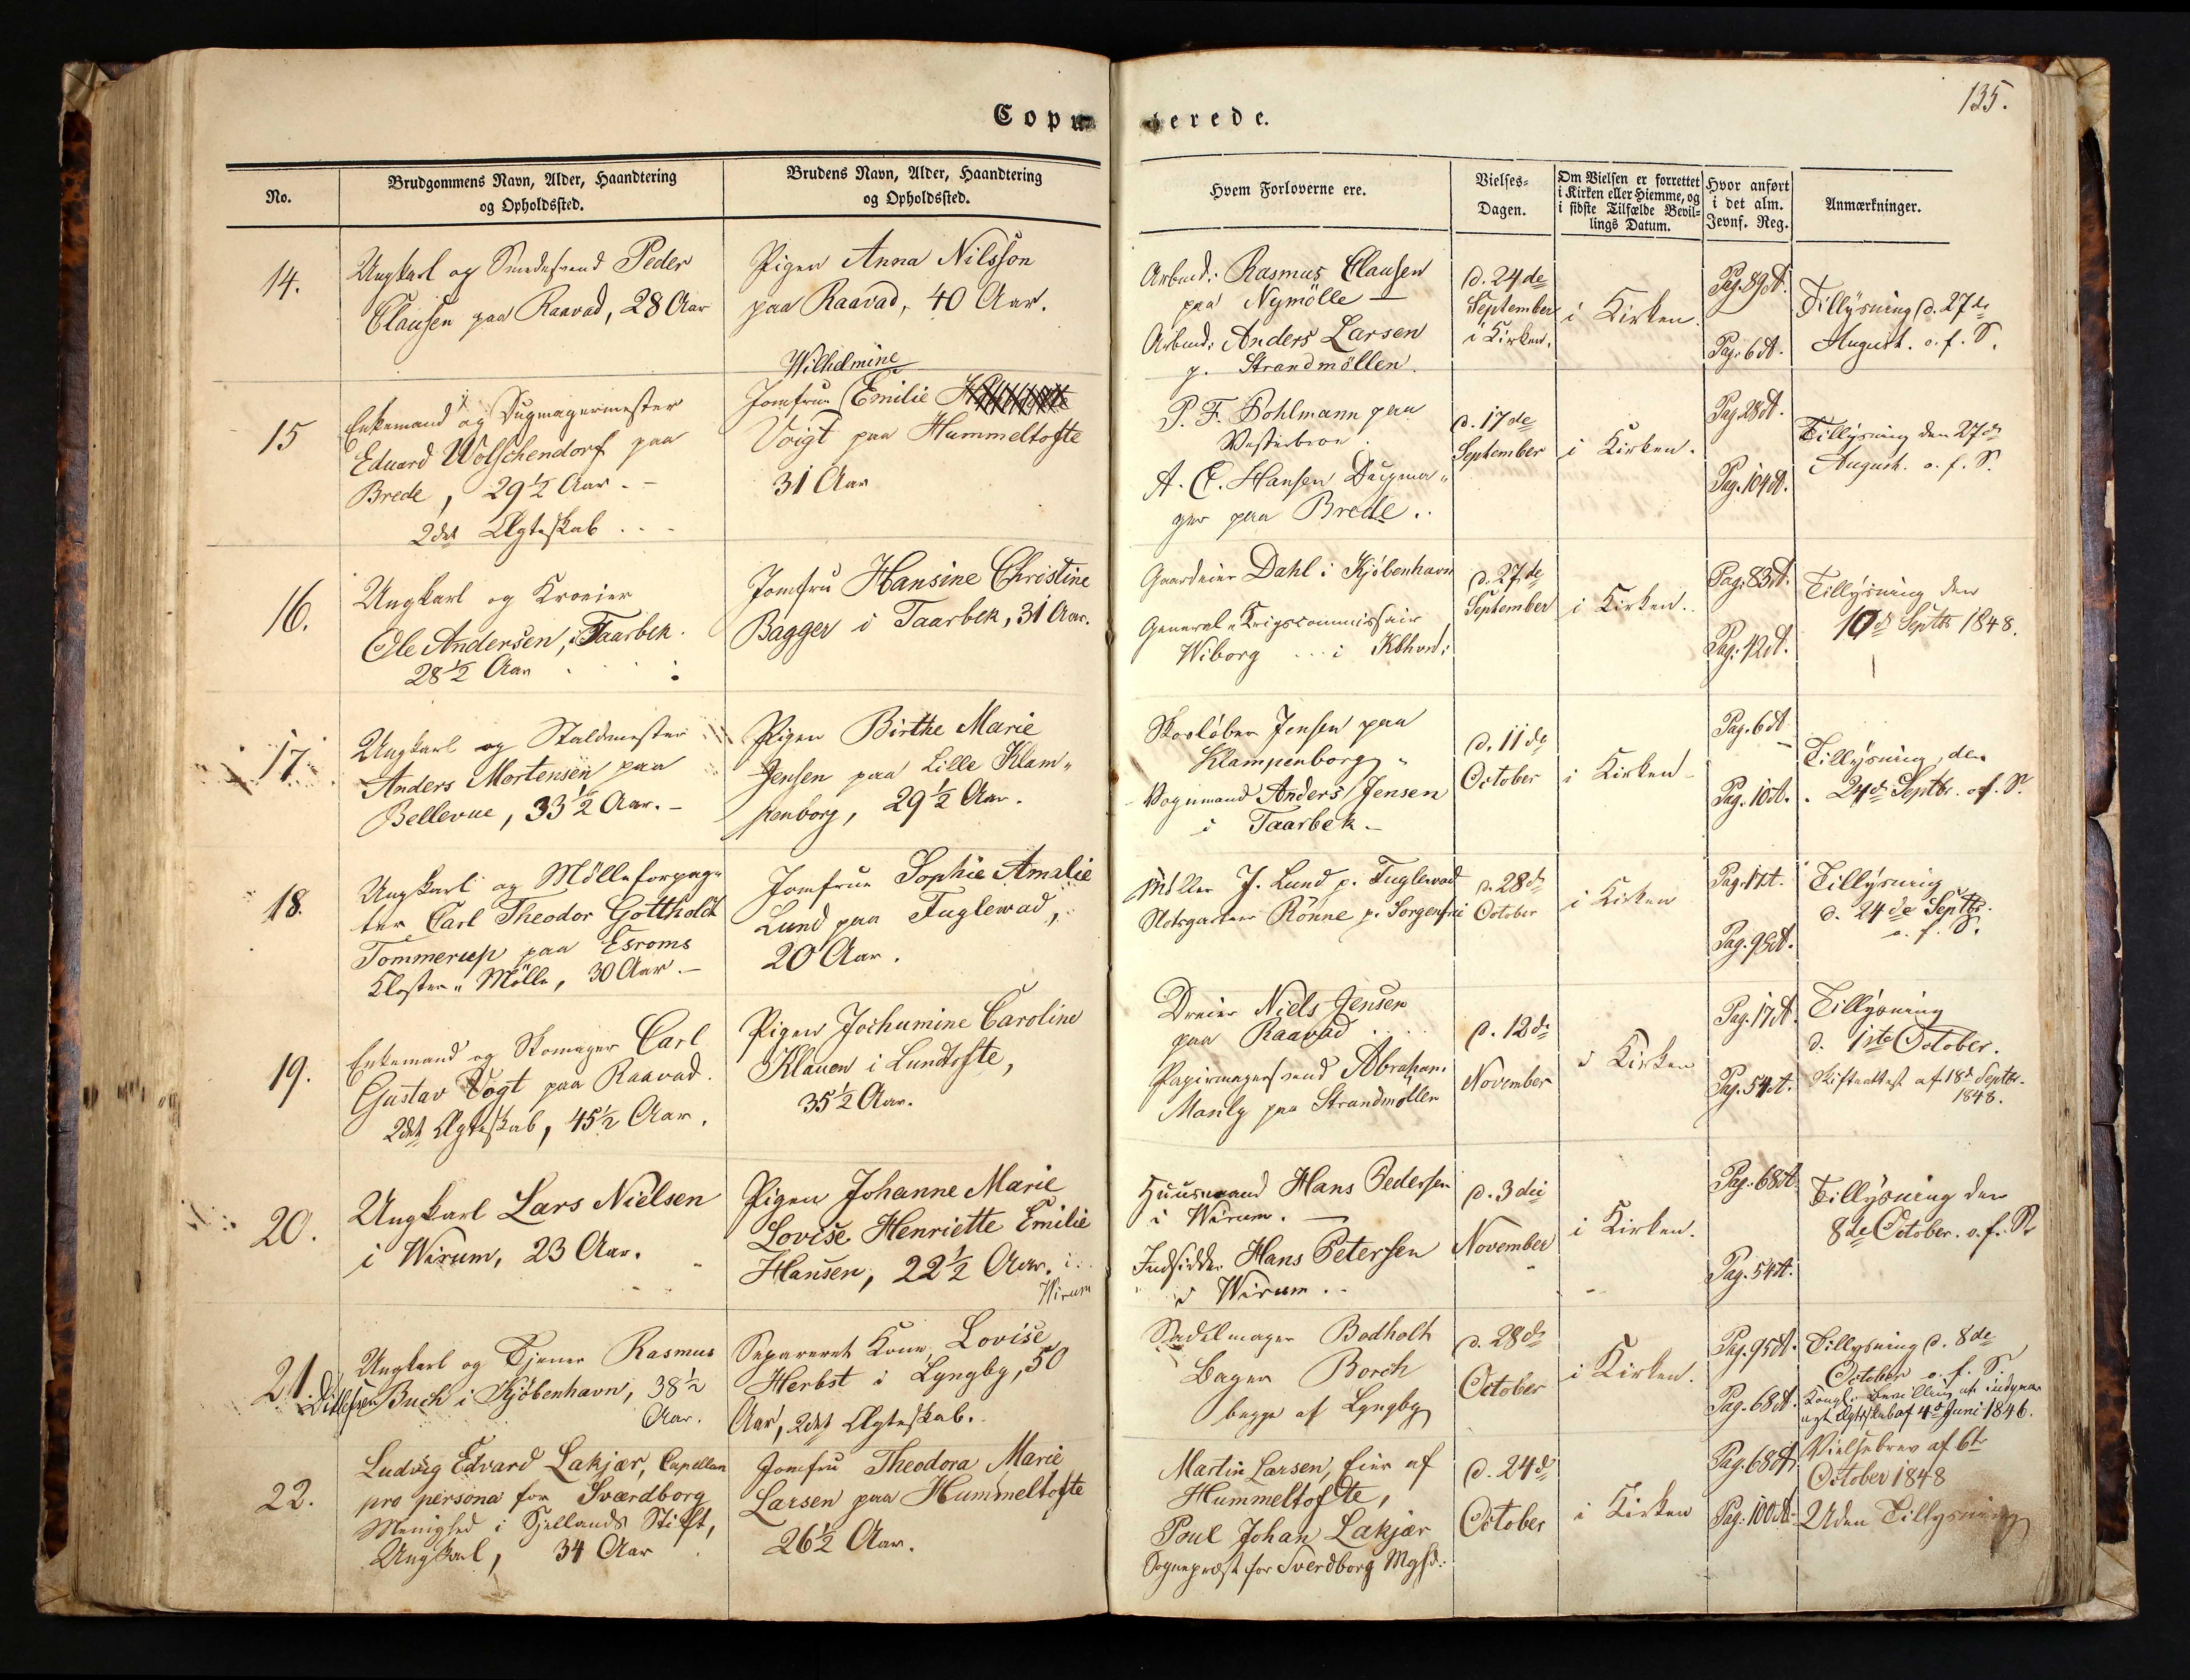 Copulerede.
135.
No.
Brudgommens Navn, Alder, Haandtering
og Opholdssted.
Brudens Navn, Alder, Haandtering
og Opholdssted.
Hvem Forloverne ere.
Vielses-
Dagen.
Om Vielsen er forrettet
i Kirken eller Hiemme, og
i sidste Tilfælde Bevil-
lings Datum.
Hvor anført
i det alm.
Jevnf. Reg.
Anmærkninger.
14.
Ungkarl og Smedesvend Peder
Clausen paa Raavad, 28 Aar
Pigen Anna Nilsson
paa Raavad, 40 Aar.
Arbmd: Rasmus Clausen
paa Nymölle —
Arbmd: Anders Larsen
p. Strandmöllen.
d. 24de
September
i Kirken.
i Kirken.
Pag. 89 A.
Pag. 6 A.
Tillysning d. 27de
August. o. f. S.
15
Enkemand og Dugmagermester
Eduard Wolschendorf paa
Brede, 29½ Aar. -
2det Ægteskab . . -
Wilhelmine
Jomfrue Emilie
Voigt paa Hummeltofte
31 Aar
P. F. Pohlmann paa
Vesterbroe.
A. C. Hansen Dugma„
ger paa Brede..
d. 17de
September
i Kirken.
Pag. 28 A.
Pag. 104 A.
Tillysning den 27de
August. o. f. S.
16.
Ungkarl og Kroeier
Ole Andersen, i Taarbek.
28½ Aar
Jomfru Hansine Christine
Bagger i Taarbek, 31 Aar.
Gaardeier Dahl i Kjöbenhavn
General„Krigscommissair
Wiborg ... i Kbhvn:
d. 27de
September
i Kirken..
Pag. 83 A.
Pag. 42 A.
Tillysning den
10de Septbr 1848.
17.
Ungkarl og Staldmester
Anders Mortensen paa
Bellevue, 33½ Aar. -
Pigen Birthe Marie
Jensen paa Lille Klam„
penborg, 29½ Aar.
Skovløber Jensen paa
Klampenborg „
Vognmand Anders Jensen
i Taarbek. -
d. 11de
October
i Kirken -
Pag. 6 A
Pag. 10 A.
Tillysning, den
24de Septbr. o. f. S.
18.
Ungkarl og Mölleforpag„
ter Carl Theodor Gottholdt
Tommerup paa Esroms
Kloster„ Mölle, 30 Aar. -
Jomfrue Sophie Amalie
Lund paa Fuglevad,
20 Aar.
Möller J. Lund p. Fuglevad
Slotsgartner Rönne p. Sorgenfri
d. 28de
October
i Kirken
Pag. 11 A.
Pag. 95 A.
Tillysning
d. 24de Septbr.
o. f. S.
19.
Enkemand og Skomager Carl
Gustav Vogt paa Raavad.
2det Ægteskab, 45½ Aar.
Pigen Jochumine Caroline
Klauen i Lundtofte,
35½ Aar.
Dreier Niels Jensen
paa Raavad ....
Papirmagersvend Abraham
Manly paa Strandmøllen
d. 12de
November
i Kirken
Pag. 17 A.
Pag. 54 A.
Tillysning
d. 1ste October.
Skifteattest af 18de Septbr.
1848.
20.
Ungkarl Lars Nielsen
i Wirum, 23 Aar.
Pigen Johanne Marie
Lovise Henriette Emilie
Hansen, 22½ Aar. i
Wirum
Huusmand Hans Pedersen
i Wirum. —
Indsidder Hans Petersen
i Wirum ..
d. 3die
November
i Kirken.
Pag. 68 A.
Pag. 54 A.
Tillysning den
8de October. o. f. S.
21.
Ungkarl og Tjener Rasmus
Ditlefsen Buch i Kjöbenhavn, 38½
Aar.
Separeret Kone, Lovise
Herbst i Lyngby, 50
Aar, 2det Ægteskab.
Sadelmager Bodholt
Bager Borch
begge af Lyngby
d. 28de
October
i Kirken.
Pag. 95 A.
Pag. 68 A.
Tillysning d. 8de
October o. f. S.
Kongl. Bevilling at indgaae
nyt Ægteskab af 4de Juni 1846.
22.
Ludvig Edvard Lakjær, Capellan
pro persona for Sværdborg
Menighed i Sjellands Stift,
Ungkarl, 34 Aar
Jomfru Theodora Marie
Larsen paa Hummeltofte
26½ Aar.
Martin Larsen, Eier af
Hummeltofte,
Poul Johan Lakjær
Sognepræst for Sverdborg Mghd:
d. 24de
October
i Kirken
Pag. 68 A
Pag. 100 A.
Vielsebrev af 6te
October 1848
Uden Tillysning